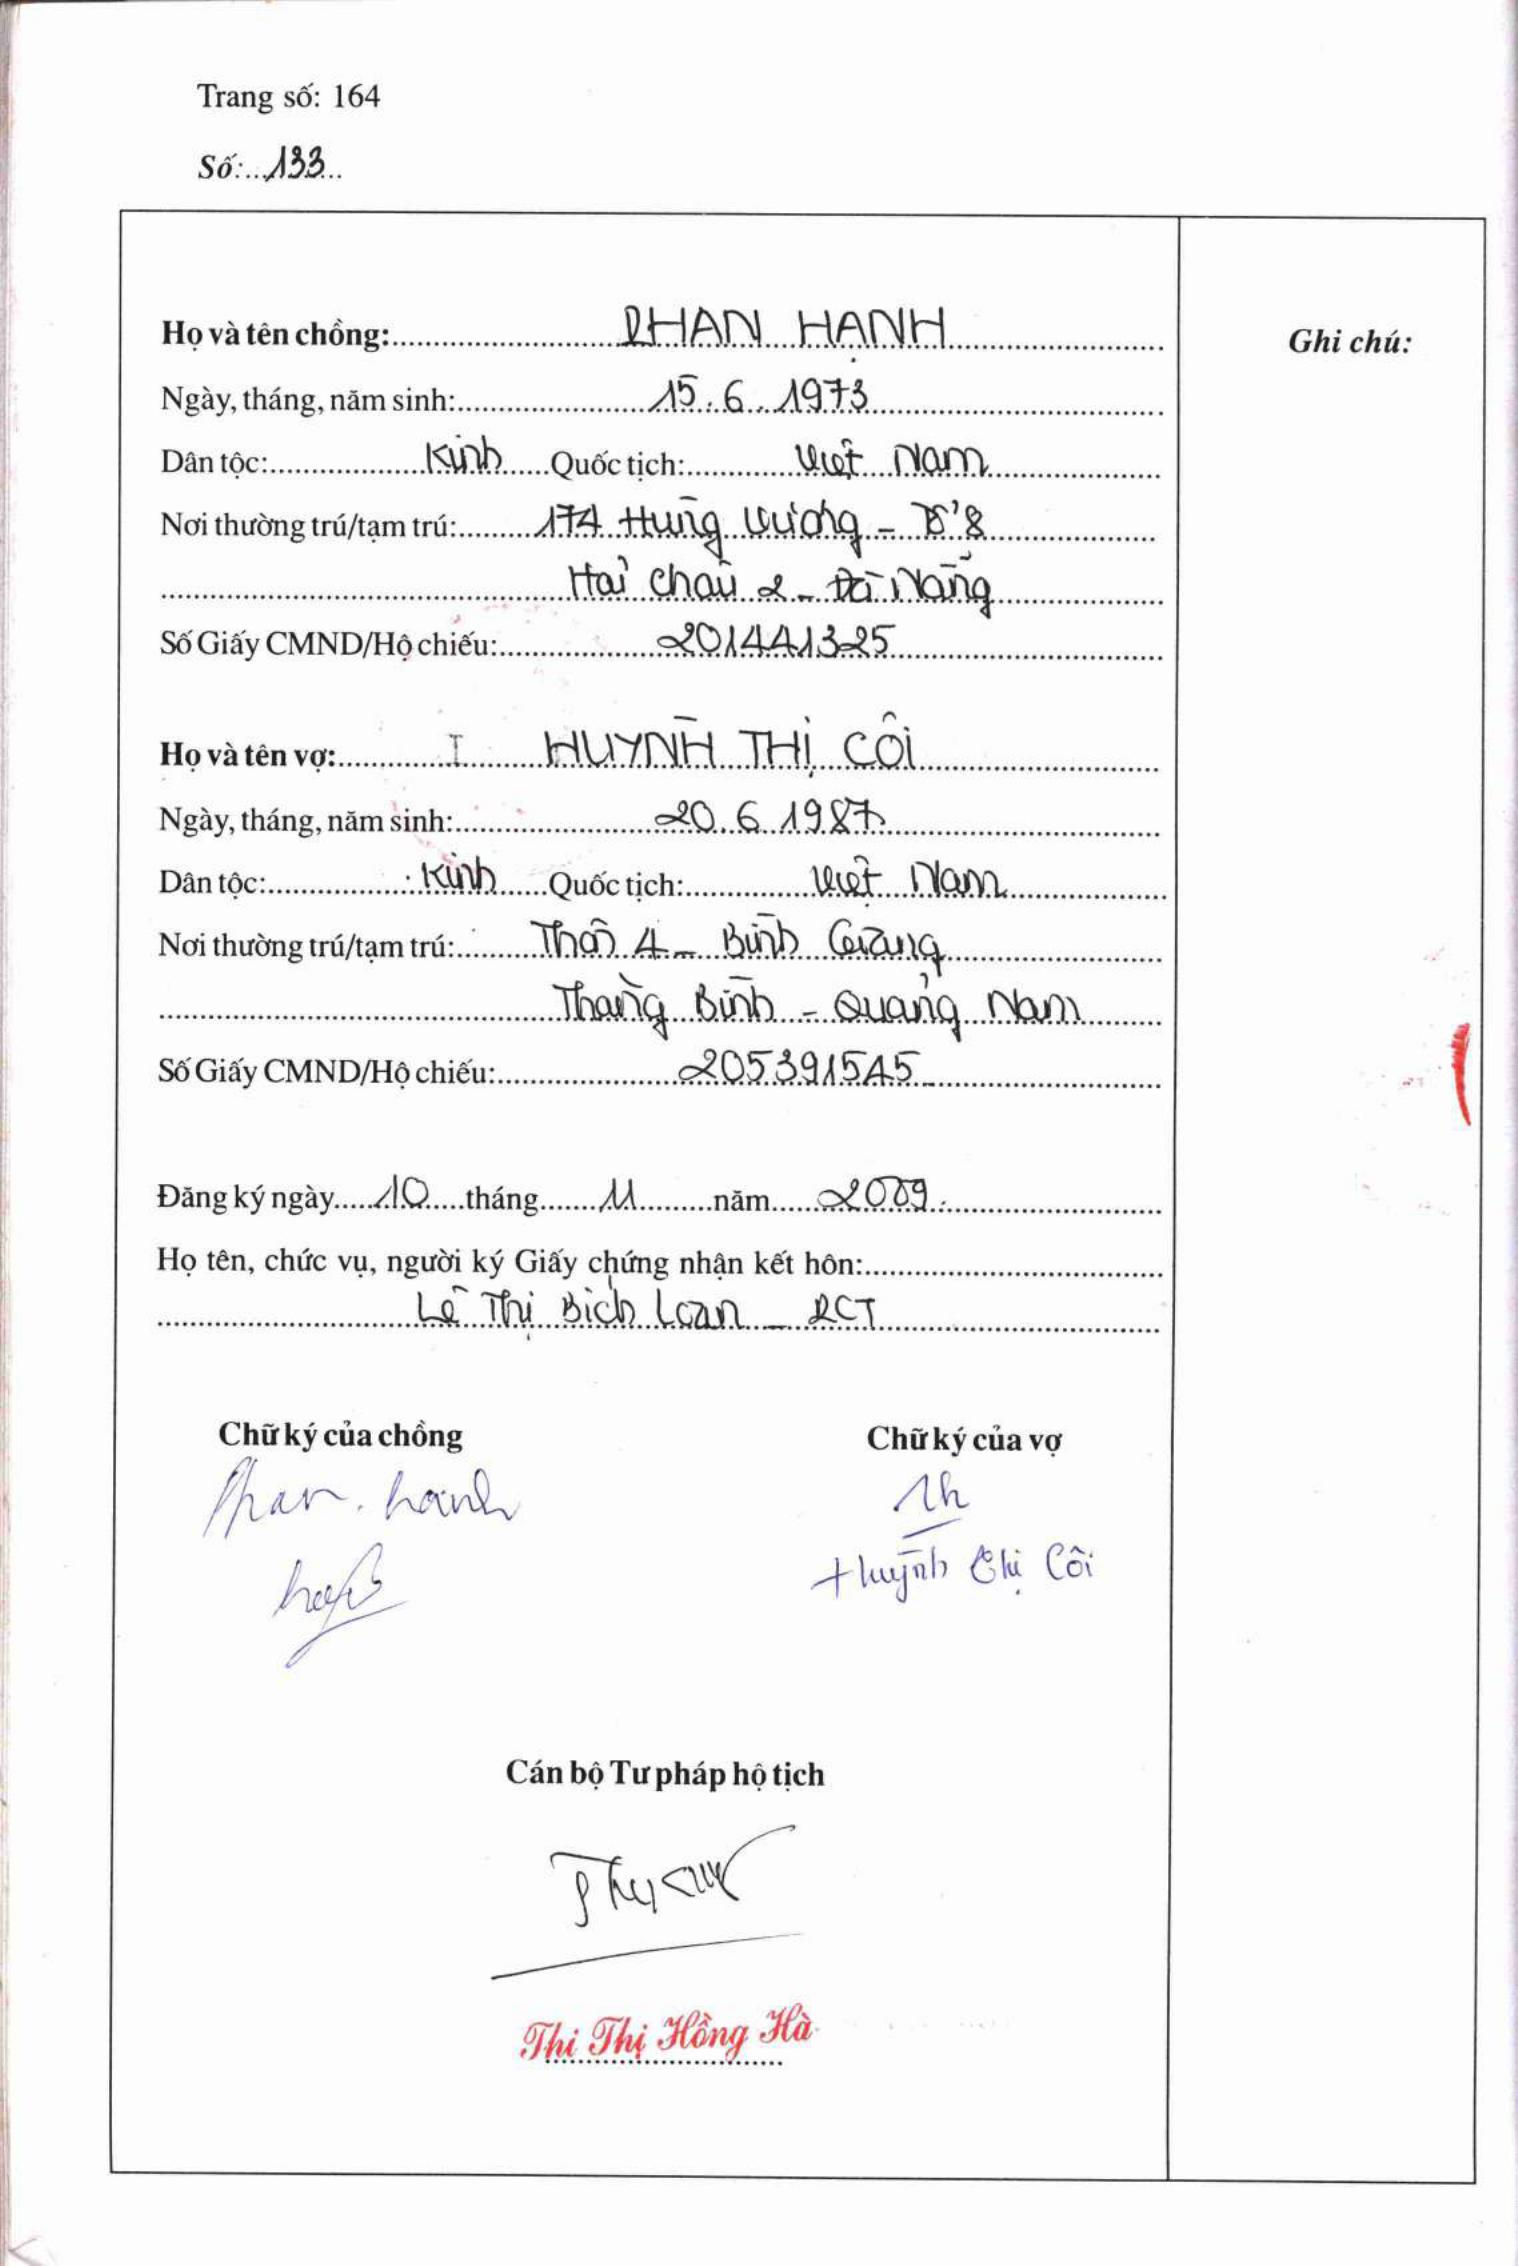 Trang số: 164
Số: 133
Ghi chú:
Họ và tên chồng: PHAN HẠNH
Ngày, tháng, năm sinh: 15.6.1973
Dân tộc: Kinh Quốc tịch: Việt Nam
Nơi thường trú/tạm trú: 174 Hùng Vương - Tổ 8
Hải Châu 2 - Đà Nẵng
Số Giấy CMND/Hộ chiếu: 201441325
Họ và tên vợ: HUỲNH THỊ CÔI
Ngày, tháng, năm sinh: 20.6.1987
Dân tộc: Kinh Quốc tịch: Việt Nam
Nơi thường trú/tạm trú: Thôn 4 - Bình Giang
Thăng Bình - Quảng Nam
Số Giấy CMND/Hộ chiếu: 205391545
Đăng ký ngày 10 tháng 11 năm 2009.
Họ tên, chức vụ, người ký Giấy chứng nhận kết hôn:
Lê Thị Bích Loan - PCT
Chữ ký của chồng Chữ ký của vợ
Phan Hạnh
Huỳnh Thị Côi
Cán bộ Tư pháp hộ tịch
Thi Thị Hồng Hà